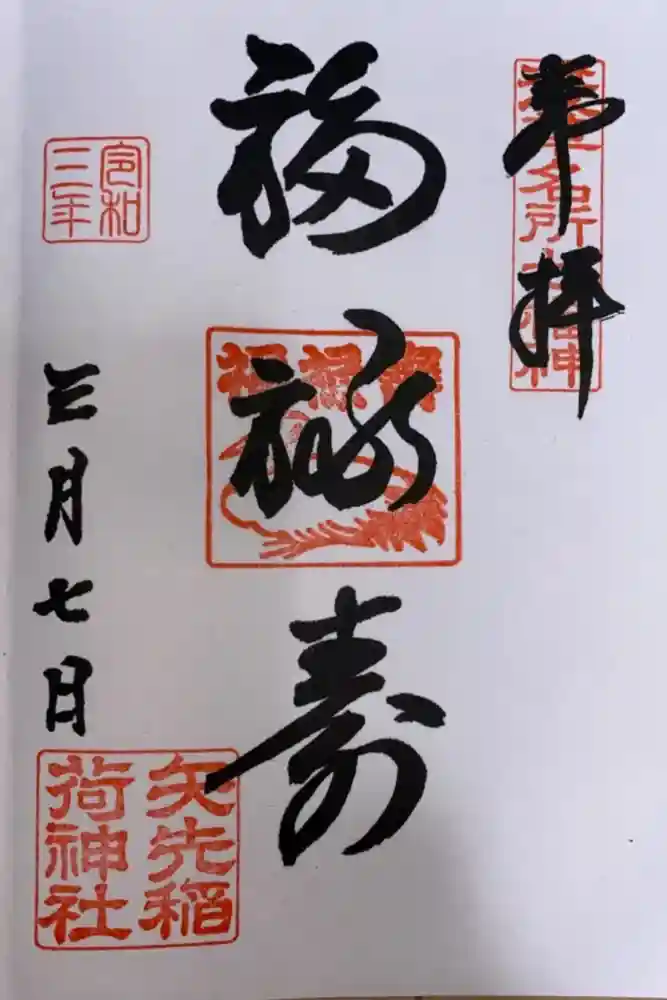 奉拝
福禄寿
福禄寿
令和
三年
三月七日
矢先稲
荷神社